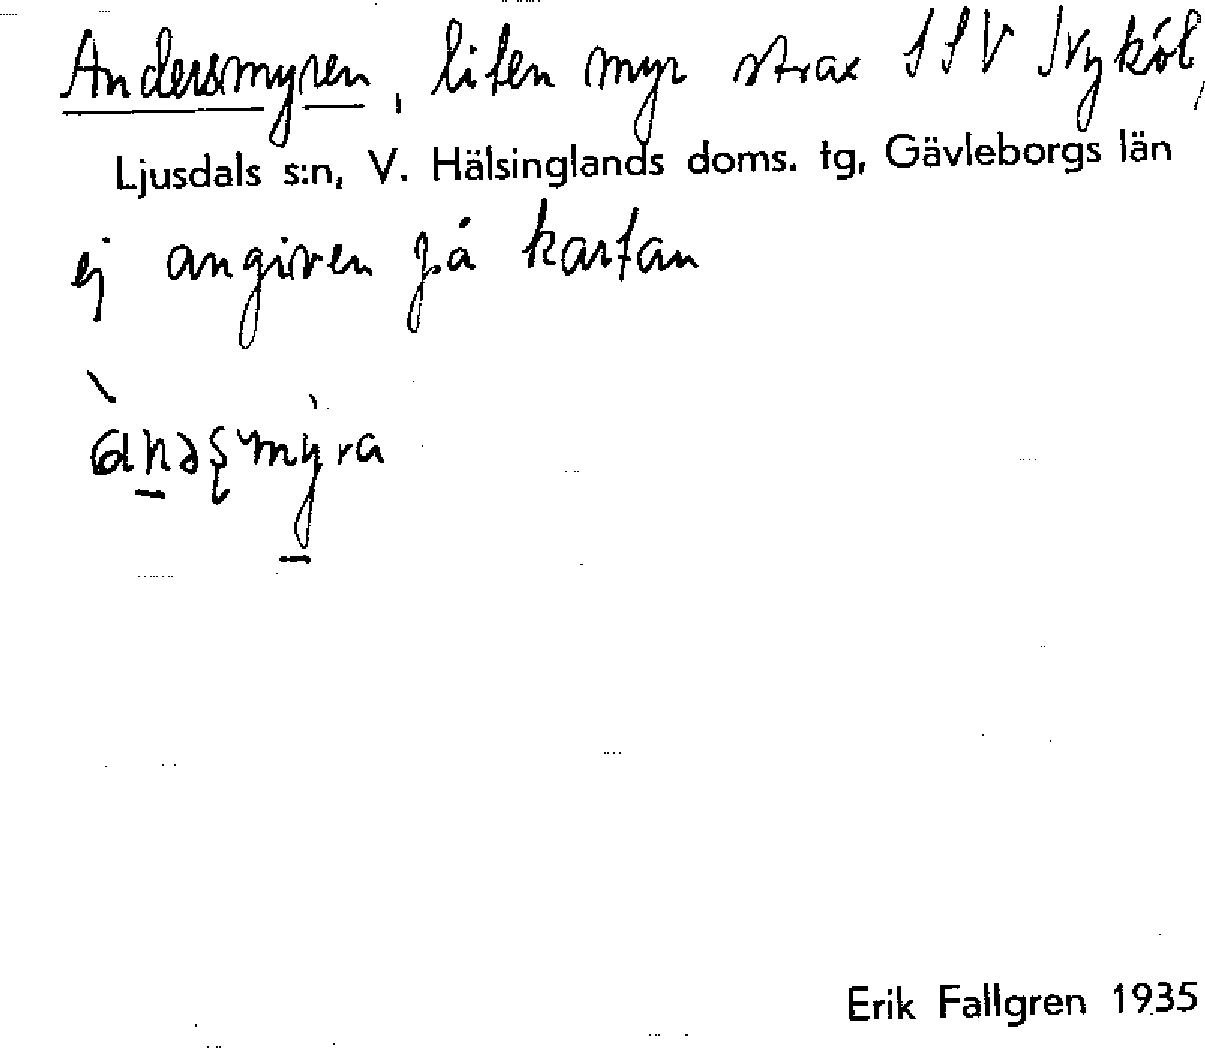 Andersmyren, liten myr strax SSV Nyköl,
Ljusdals s:n, V. Hälsinglands doms. tg, Gävleborgs län
ej angiven på kartan
Erik Fallgren 1935